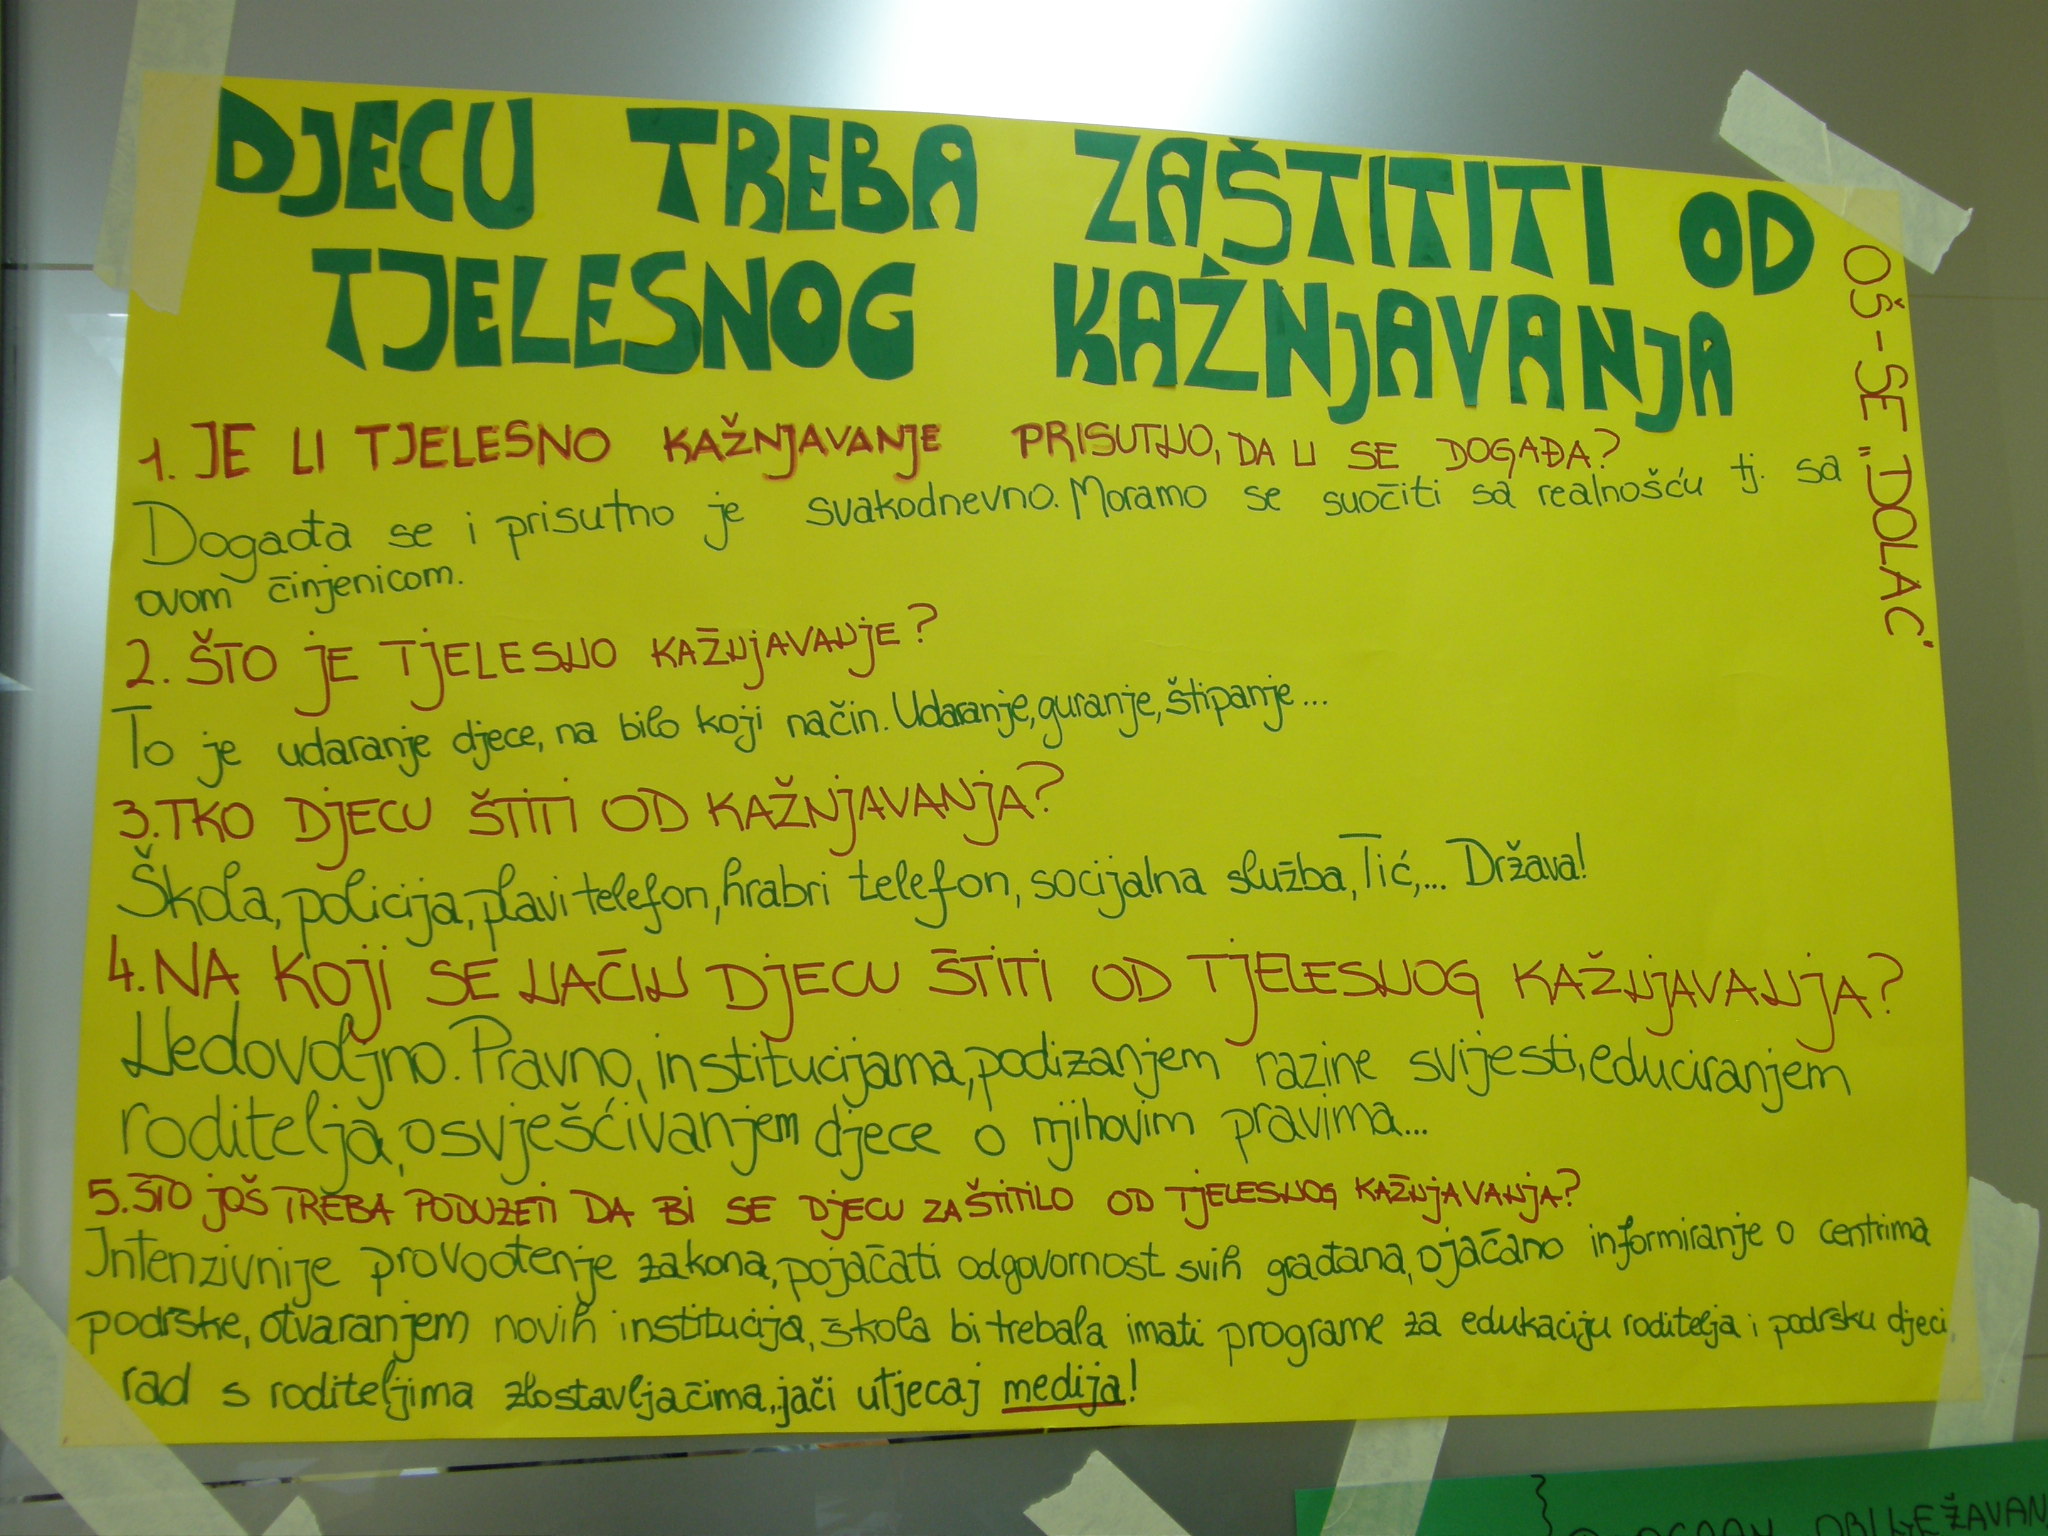 DJECU TREBA ZAŠTITITI OD
TJELESNOG KAŽNJAVANJA
OŠ-SE „DOLAC"
1. JE LI TJELESNO KAŽNJAVANJE PRISUTNO, DA LI SE DOGAĐA?
Događa se i prisutno je svakodnevno. Moramo se suočiti sa realnošću tj. sa
ovom činjenicom.
2. ŠTO JE TJELESNO KAŽNJAVANJE?
To je udaranje djece, na bilo koji način. Udaranje, guranje, štipanje...
3. TKO DJECU ŠTITI OD KAŽNJAVANJA?
Škola, policija, plavi telefon, hrabri telefon, socijalna služba, Tić,... Država!
4. NA KOJI SE NAČIN DJECU ŠTITI OD TJELESNOG KAŽNJAVANJA?
Nedovoljno. Pravno, institucijama, podizanjem razine svijesti, educiranjem
roditelja, osvješćivanjem djece o njihovim pravima...
5. ŠTO JOŠ TREBA PODUZETI DA BI SE DJECU ZAŠTITILO OD TJELESNOG KAŽNJAVANJA?
Intenzivnije provođenje zakona, pojačati odgovornost svih građana, ojačano informiranje o centrima
podrške, otvaranjem novih institucija, škola bi trebala imati programe za edukaciju roditelja i podršku djeci,
rad s roditeljima zlostavljačima, jači utjecaj medija!